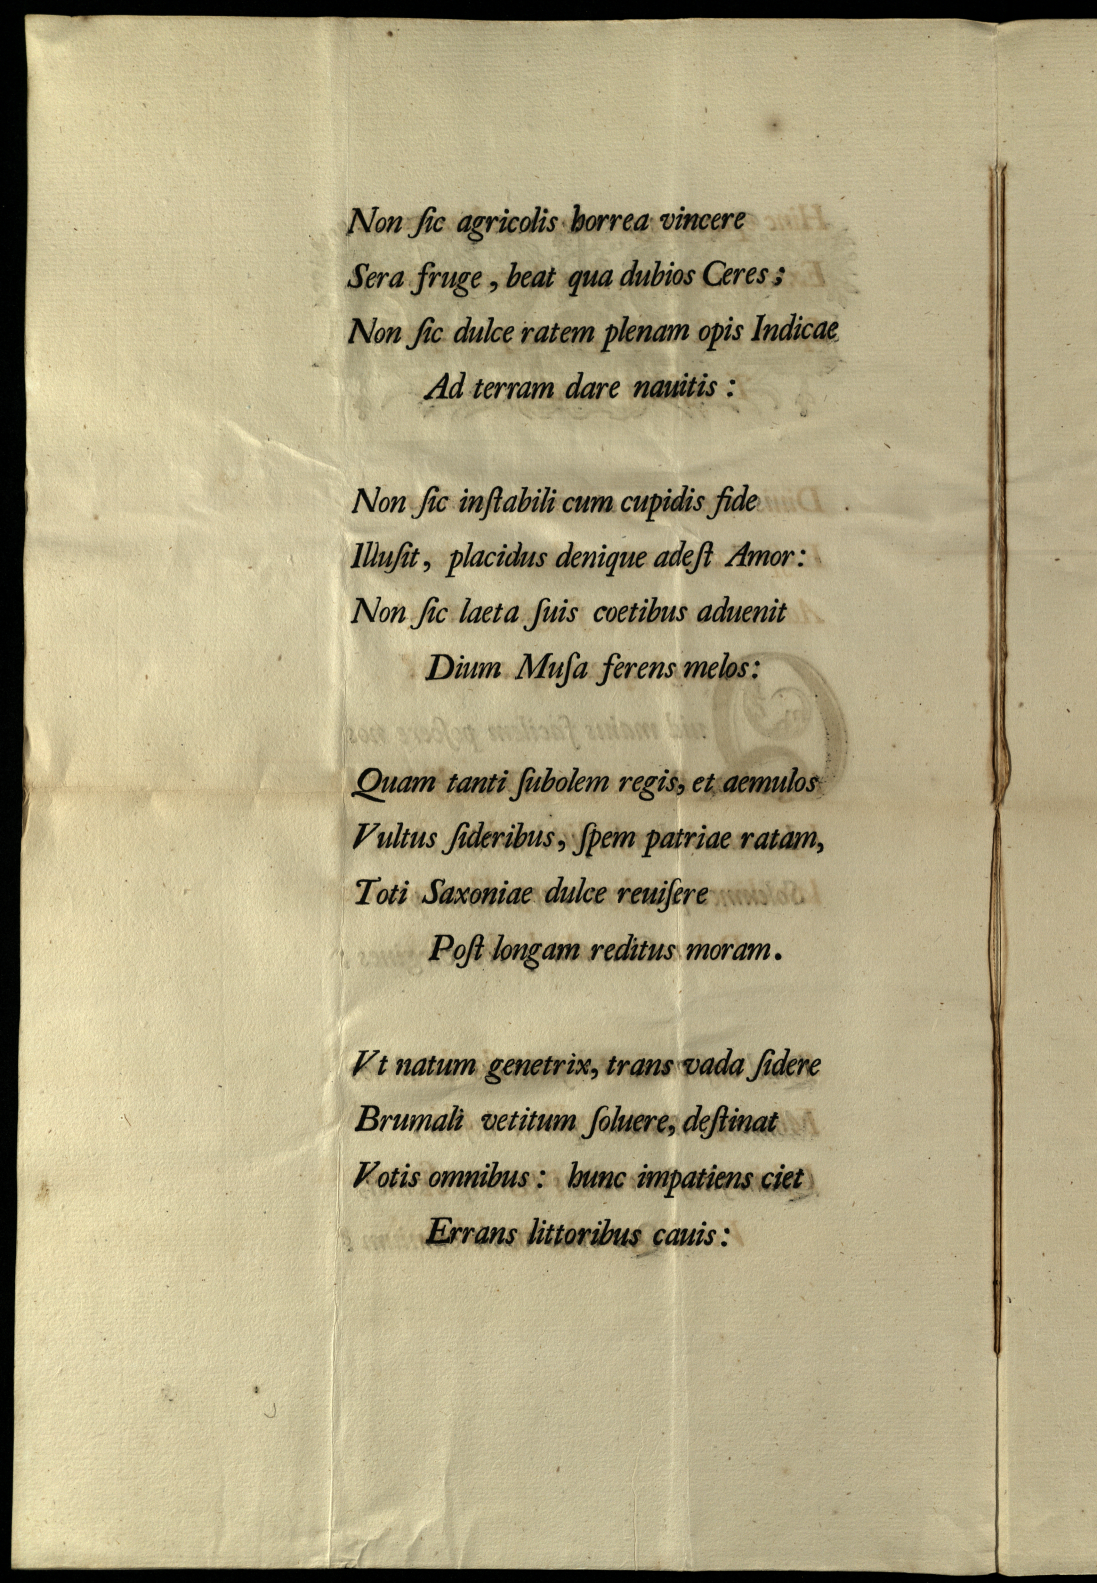 Non ſic agricolis horrea vincere
Sera fruge, beat qua dubios Ceres;
Non ſic dulce ratem plenam opis Indicae
Ad terram dare nauitis:
Non ſic inſtabili cum cupidis fide
Illuſit, placidus denique adeſt Amor:
Non ſic laeta ſuis coetibus aduenit
Dium Muſa ferens melos:
Quam tanti ſubolem regis, et aemulos
Vultus ſideribus, ſpem patriae ratam,
Toti Saxoniae dulce reuiſere
Poſt longam reditus moram.
Vt natum genetrix, trans vada ſidere
Brumali vetitum ſoluere, deſtinat
Votis omnibus: hunc impatiens ciet
Errans littoribus cauis: